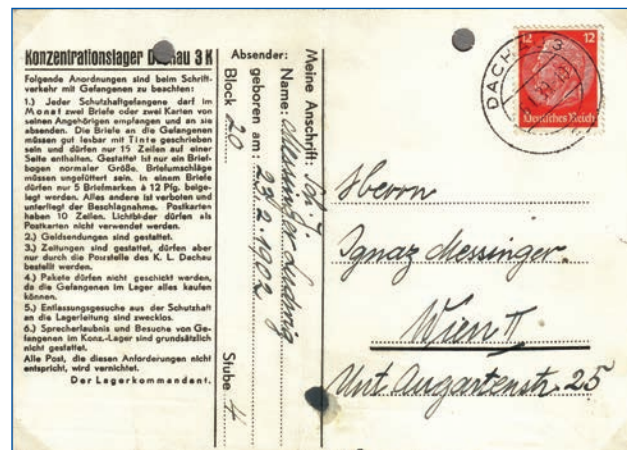 Konzentrationslager Dachau 3 K
Folgende Anordnungen sind beim Schrift-
verkehr mit Gefangenen zu beachten:
1.) Jeder Schutzhaftgefangene darf im
Monat zwei Briefe oder zwei Karten von
seinen Angehörigen empfangen und an sie
absenden. Die Briefe an die Gefangenen
müssen gut lesbar mit Tinte geschrieben
sein und dürfen nur 15 Zeilen auf einer
Seite enthalten. Gestattet ist nur ein Brief-
bogen normaler Größe. Briefumschläge
müssen ungefüttert sein. In einem Briefe
dürfen nur 5 Briefmarken à 12 Pfg. beige-
legt werden. Alles andere ist verboten und
unterliegt der Beschlagnahme. Postkarten
haben 10 Zeilen. Lichtbilder dürfen als
Postkarten nicht verwendet werden.
2.) Geldsendungen sind gestattet.
3.) Zeitungen sind gestattet, dürfen aber
nur durch die Poststelle des K. L. Dachau
bestellt werden.
4.) Pakete dürfen nicht geschickt werden,
da die Gefangenen im Lager alles kaufen
können.
5.) Entlassungsgesuche aus der Schutzhaft
an die Lagerleitung sind zwecklos.
6.) Sprecherlaubnis und Besuche von Ge-
fangenen im Konz.-Lager sind grundsätzlich
nicht gestattet.
Alle Post, die diesen Anforderungen nicht
entspricht, wird vernichtet.
Der Lagerkommandant.
Meine Anschrift: Sch. J.
Absender:
Name: Messinger Ludwig
geboren am: 23.2.1902
Block 20 Stube 4
12 12
Deutsches Reich
DACHAU 3
Herrn
Ignaz Messinger
Wien II
Unt. Augartenstr. 25